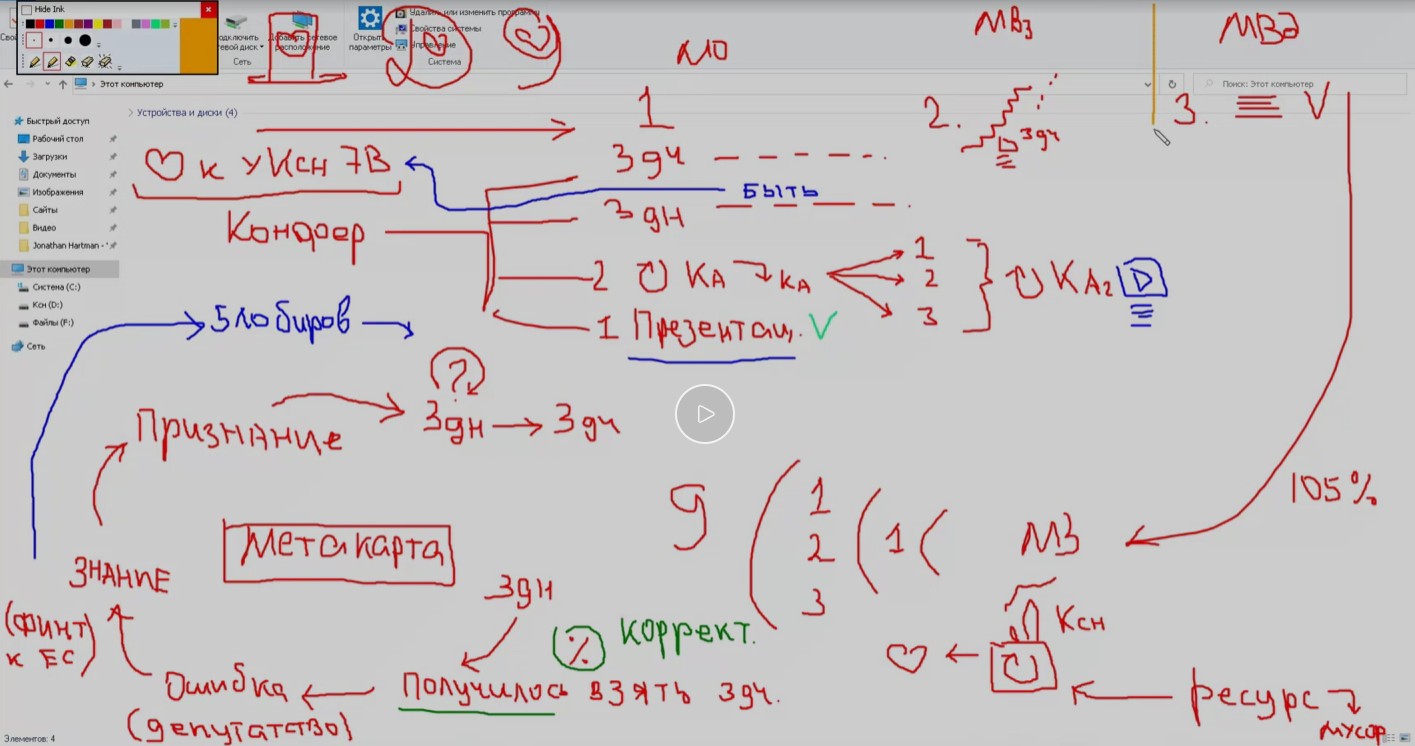 Hide Ink
Удалить или изменить программу
Свойства системы
Управление
Система
Добавить сетевое расположение
Открыть параметры
Сеть
Этот компьютер
Поиск: Этот компьютер
Устройства и диски (4)
Быстрый доступ
Рабочий стол
Загрузки
Документы
Изображения
Сайты
Видео
Jonathan Hartman -
Этот компьютер
Система (C:)
Ксн (D:)
Файлы (F:)
Сеть
Элементов: 4
МО
МВз
МВд
1
2.
3.
V
Здч
Здч
к уКсн 7В
БЫТЬ
Здн
Кондоер
2
КА
КА
1
2
3
КА2
D
1 Презентац. V
5 лобиров
?
Признание
Здн
Здч
9
1
2
3
1
МЗ
105%
Метакарта
ЗНАНИЕ
Здн
(Финт к ЕС)
% Коррект.
Ксн
Ошибка
(депутатство)
Получилось взять здч.
ресурс
мусор